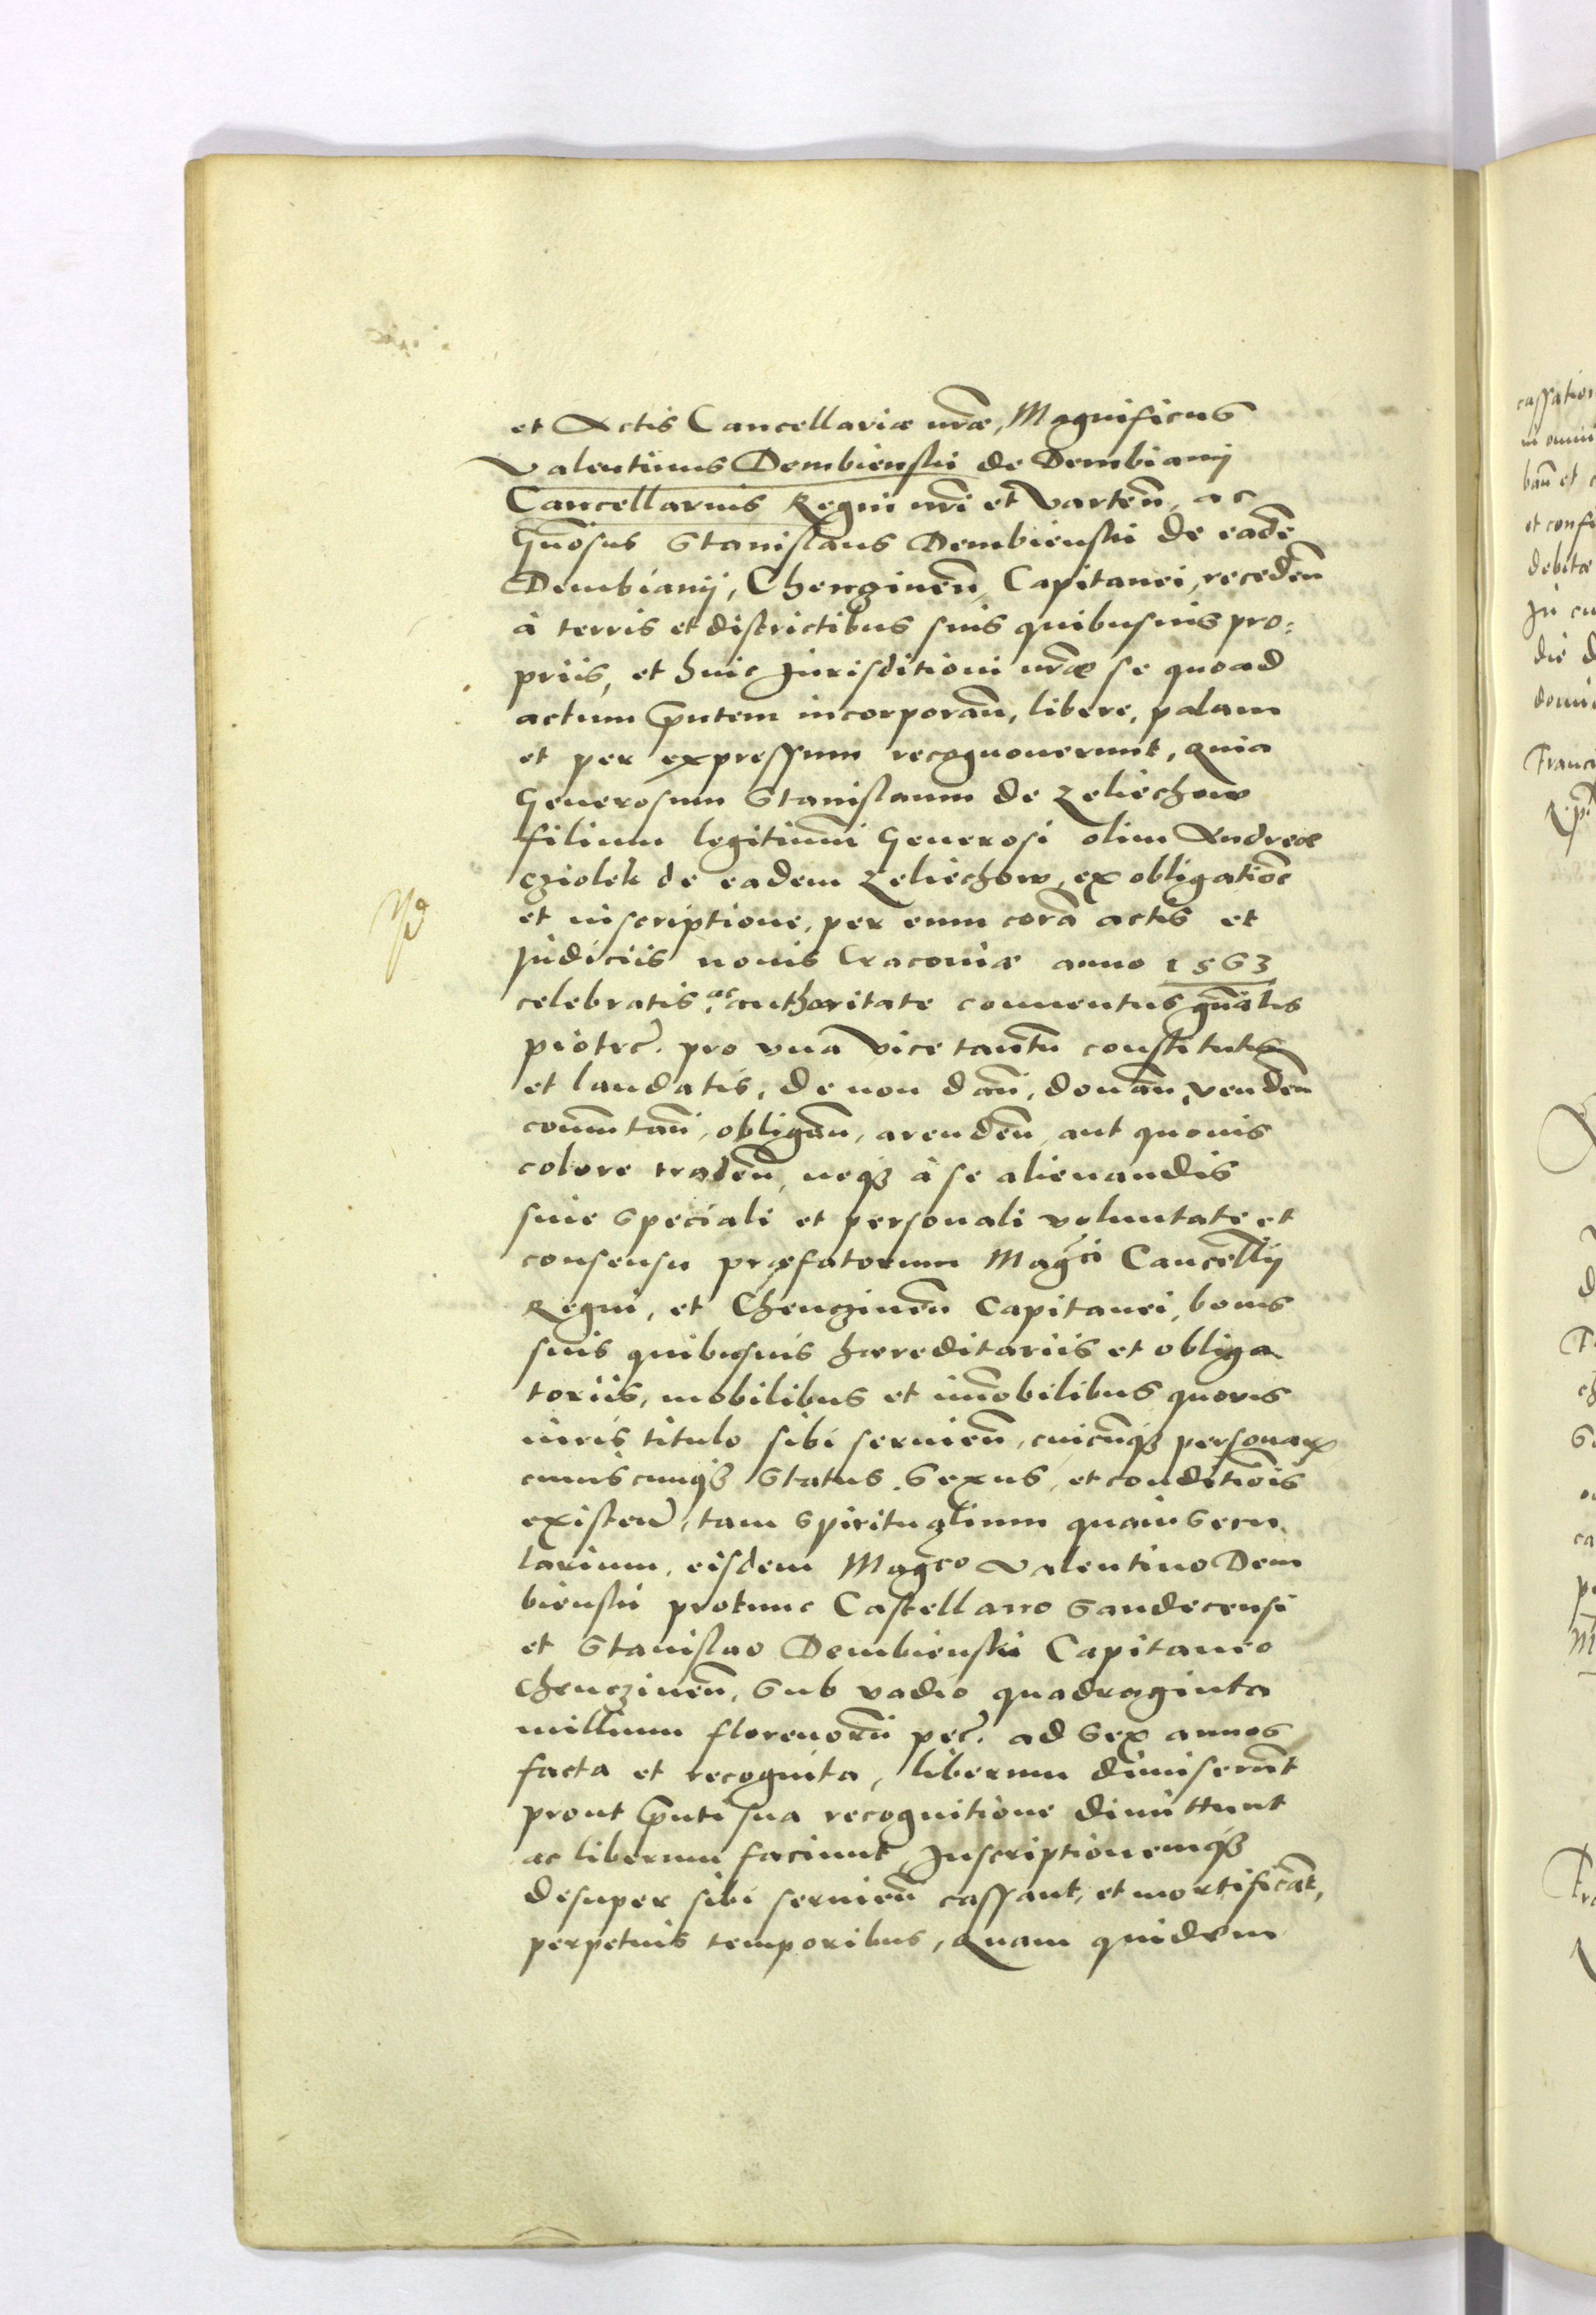 et Actis Cancellariæ nrãe, Magnificus
Valentinus Dembienskii de Dembianij
Cancellarius Regni nrĩ et Varteñ, ac
Gnõsus Stanislaus Dembienskii de eadẽ
Dembianij, Chenzineñ, Capitanei, recedeñ
à terris et districtibus suis quibusuis pro:
priis, et huic Jurisditioni nrãe se quoad
actum pñtem incorporañ, libere, palam
et per expressum recognouerunt, Quia
Generosum Stanislaum de Zeliechow
filium legitimũ Generosi olim Andreæ
Cziolek de eadem Zeliechow, ex obligatiõe
et inscriptione, per eum corã actis et
Judiciis nouis Cracoviæ anno 1563
celebratis ac authoritate conuentus gñalis
piotrc. pro vna vice tantũ constitutis
et laudatis, de non dañ, donañ, vendeñ
comutañ, obligañ, arendeñ, aut quouis
colore tradeñ, neq₃ à se alienandis
siue speciali et personali voluntate et
consensu præfatorum Magci Cancellij
Regni, et Chenczineñ Capitanei, bonis
suis quibusuis hæreditariis et obliga
toriis, mobilibus et imobilibus quouis
iuris titulo sibi seruieñ, cuicũq₃ personaꝝ
cuiuscunq₃ status, sexus, et conditiõis
existeñ, tam spiritualium quam secu
larium, eisdem Magco Valentino Dem
bienskii protunc Castellano Sandecensi
et Stanislao Dembienskii Capitaneo
Chenczineñ, sub vadio quadraginta
millium florenorũ pec. ad sex annos
facta et recognita, liberum dimiserũt
prout pñti sua recognitione dimittunt
ac liberum faciunt, Inscriptionemq₃
desuper sibi seruieñ cassant, et mortificãt,
perpetuis temporibus, Quam quidem